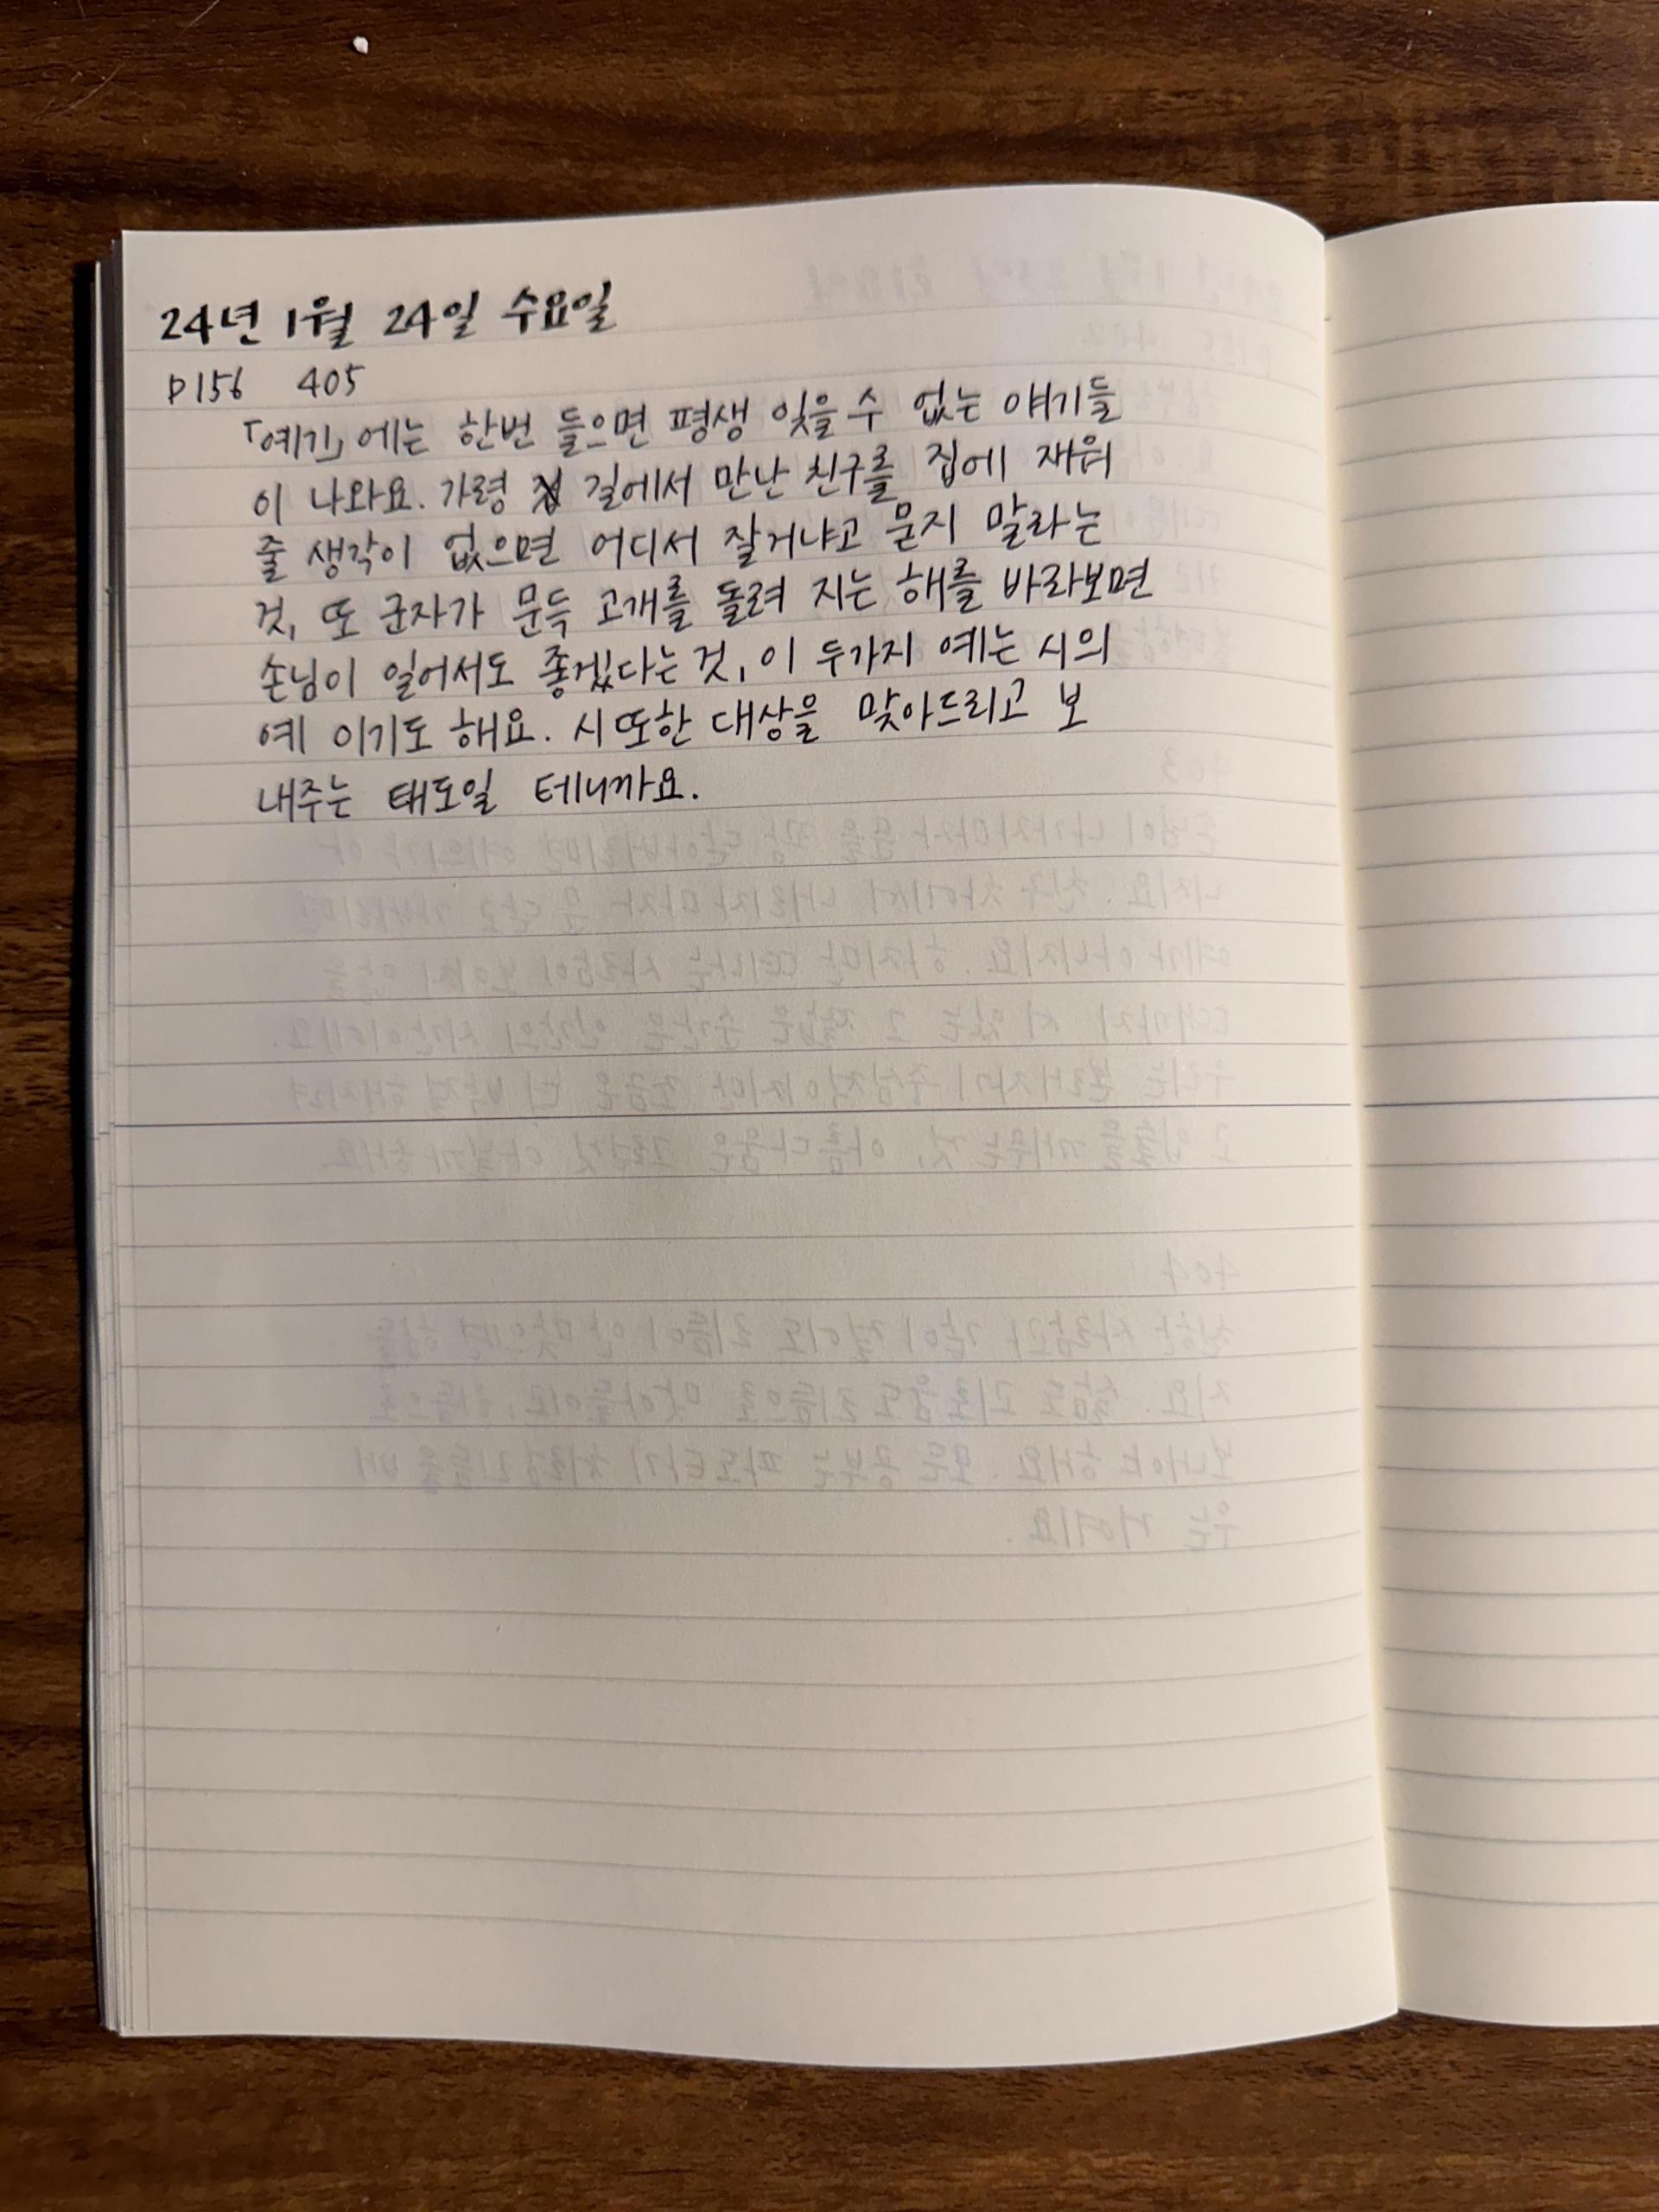 24년 1월 24일 수요일
P156 405
「예기」에는 한번 들으면 평생 잊을 수 없는 얘기들
이 나와요. 가령 길에서 만난 친구를 집에 재워
줄 생각이 없으면 어디서 잘거냐고 묻지 말라는
것, 또 군자가 문득 고개를 돌려 지는 해를 바라보면
손님이 일어서도 좋겠다는 것, 이 두가지 예는 시의
예 이기도 해요. 시 또한 대상을 맞아드리고 보
내주는 태도일 테니까요.